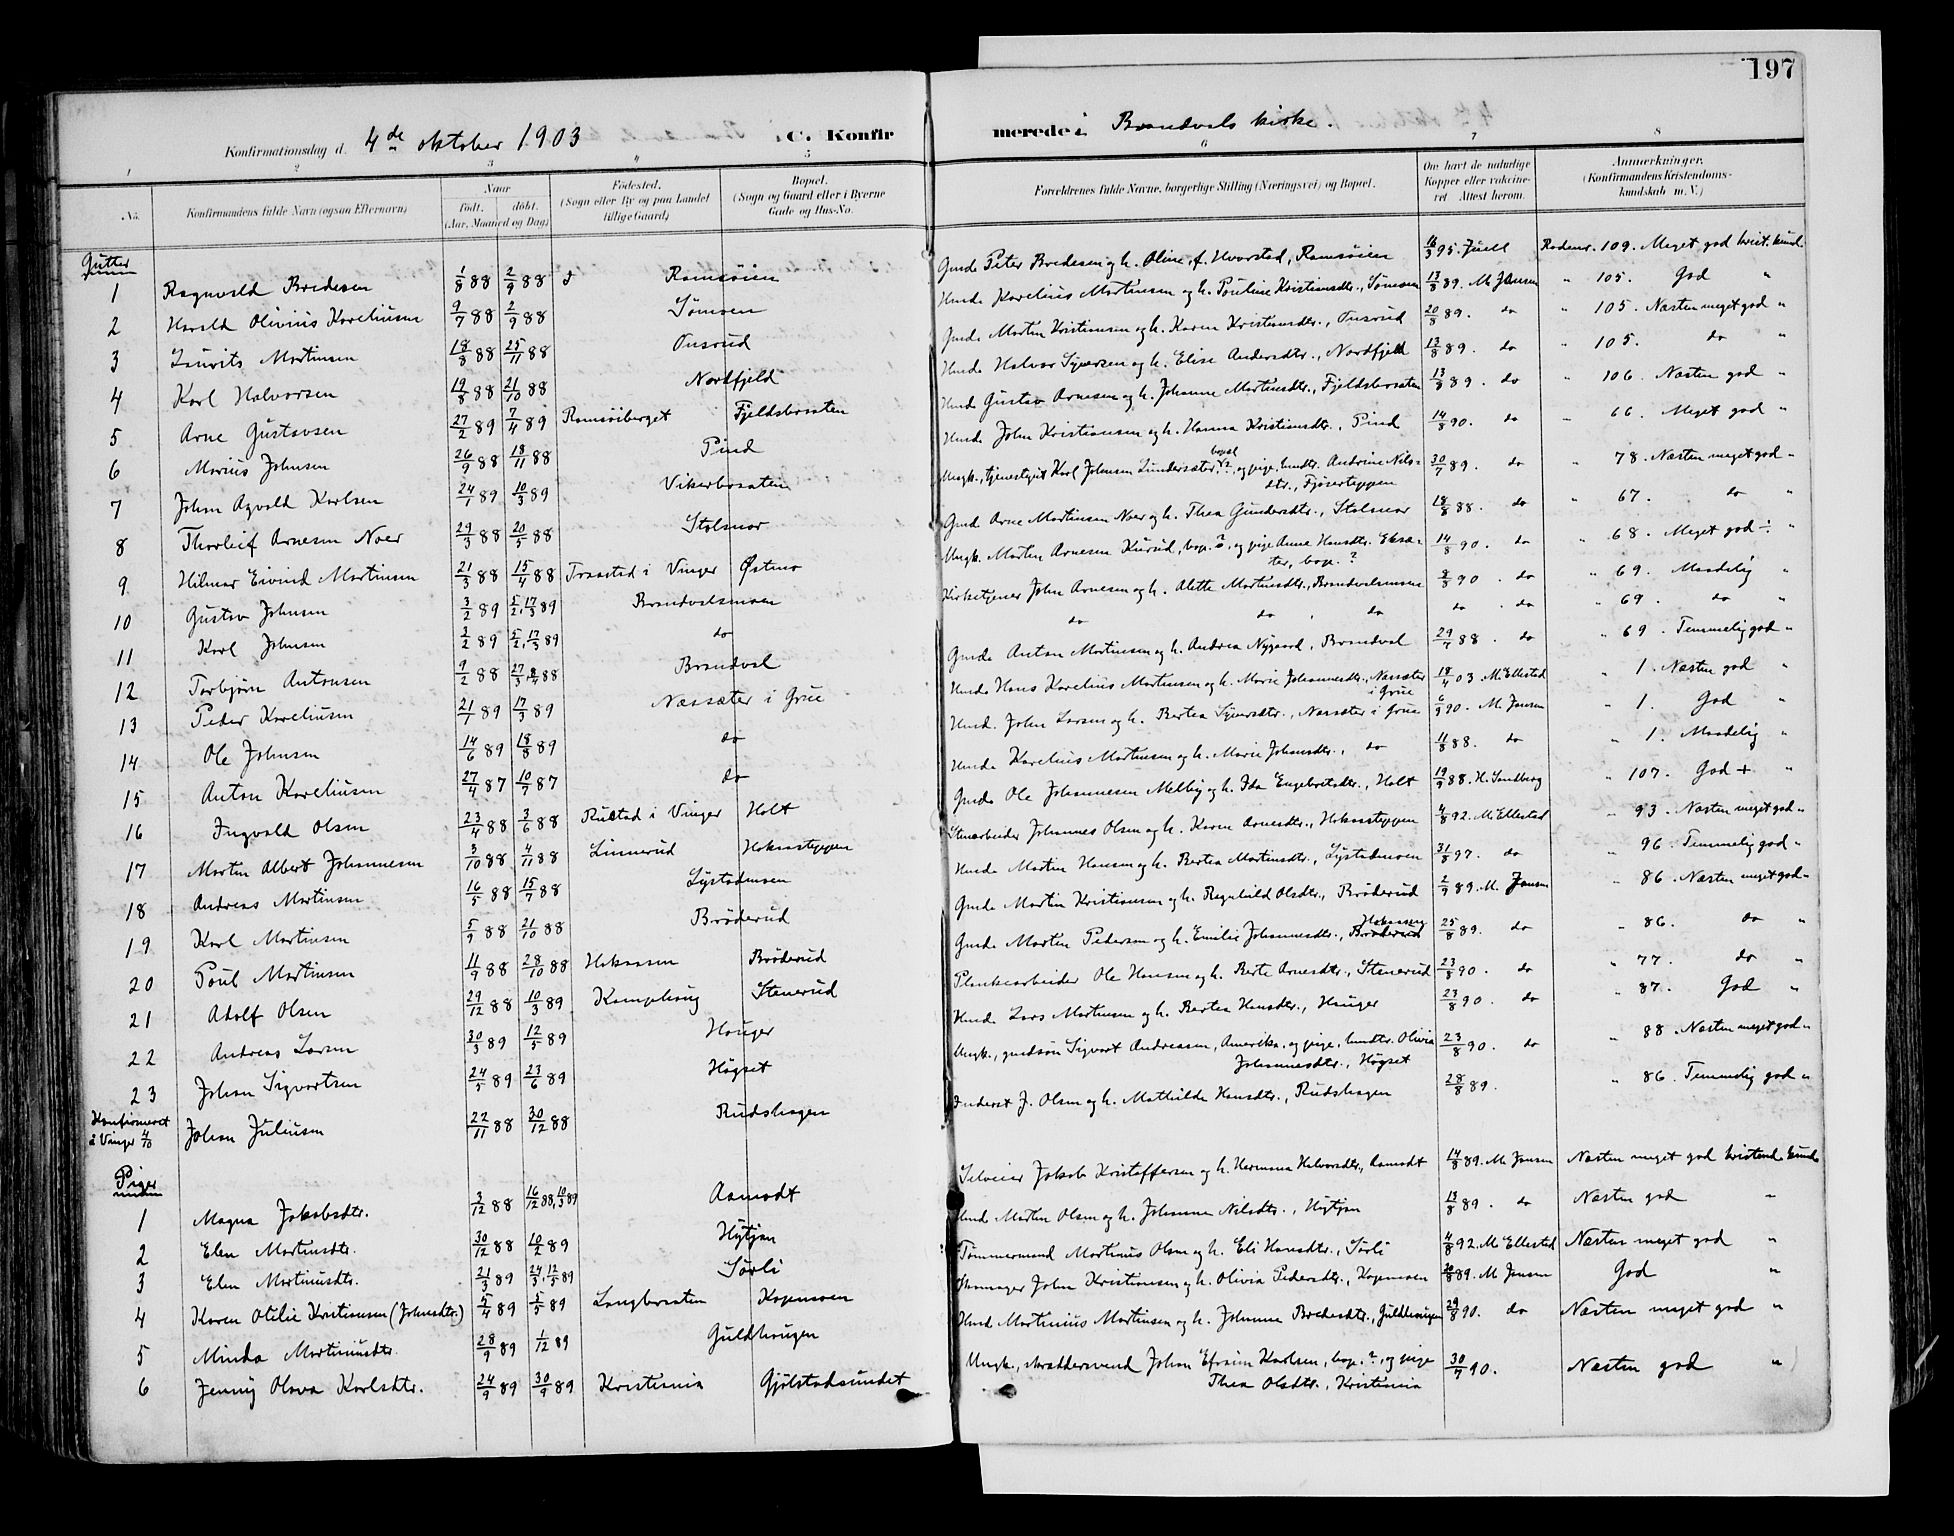 197
Konfirmationsdag d. 4de oktober 1903 C. Konfirmerede i Brandvals kirke.
1 2 3 4 5 6 7 8
No. Konfirmandens fulde Navn (ogsaa Efternavn) Naar født. døbt. (Aar, Maaned og Dag) Fødested. (Sogn eller By og paa Landet tillige Gaard) Bopæl. (Sogn og Gaard eller i Byerne Gade og Hus-No. Forældrenes fulde Navne, borgerlige Stilling (Næringsvei) og Bopæl. Om havt de naturlige Kopper eller vaccineret Attest herom. Anmerkninger. (Konfirmandens Kristendomskundskab m. V.)
Gutter
1 Ragnvald Bredesen 1/8 88 2/9 88 Ramsøien Gmd. Peter Bredesen og h. Oline, f. Hvarstad, Ramsøien 16/3 95. Juell Rodenr. 109. Meget god krist. kund.
2 Harald Olivius Kareliusen 9/7 88 2/9 88 Sømoen Hmd. Karelius Martinsen og h. Pauline Kristiansdtr., Sømoen 13/8 89. M. Jansen " 105. God "
3 Laurits Martinsen 18/8 88 25/11 88 Onsrud Gmd. Martin Kristiansen og h. Karen Kristiansdtr., Onsrud 20/8 89. do " 105. Næsten meget god "
4 Karl Halvorsen 19/8 88 21/10 88 Nordfjeld Hmd. Halvor Syversen og h. Elise Andersdtr., Nordfjeld 13/8 89. do " 105. do "
5 Arne Gustavsen 27/2 89 7/4 89 Ramsøiberget Fjeldsbraaten Hmd. Gustav Arnesen og h. Johanne Martinsdtr., Fjeldsbraaten 13/8 89. do " 106. Næsten god "
6 Marius Johnsen 26/9 88 18/11 88 Pind Hmd. John Kristiansen og h. Hanna Kristiansdtr., Pind 14/8 90. do " 66. Meget god "
7 Johan Agvald Karlsen 24/1 89 10/3 89 Vikerbraaten Ungk., tjenestegut Karl Johnsen Lundersæter, bopæl ?, og pige, hmdtr. Andrine Nilsdtr., Fjøserteppen 30/7 89. do " 78. Næsten meget god "
8 Thorleif Arnesen Noer 29/3 88 20/5 88 Stolsmor Gmd. Arne Martinsen Noer og h. Thea Gundersdtr., Stolsmor 18/8 88. do " 67. do "
9 Hilmar Eivind Martinsen 21/3 88 15/4 88 Traastad i Vinger Østmo Ungk. Martin Arnesen Kurud, bop. ?, og pige Anne Hansdtr. Eksæter, bop. ? 14/8 90. do " 68. Meget god ÷ "
10 Gustav Johnsen 3/2 89 5/2, 17/3 89 Brandvalsmoen Kirketjener John Arnesen og h. Alette Martinsdtr., Brandvalsmoen 8/8 90. do " 69. Maadelig "
11 Karl Johnsen 3/2 89 5/2, 17/3 89 do do do do do . do " 69. do "
12 Torbjørn Antonsen 9/2 88 27/3, 8/4 88 Brandval Gmd. Anton Martinsen og h. Andrea Nygaard, Brandval 29/7 88. do " 69. Temmelig god "
13 Peder Kareliusen 21/1 89 17/3 89 Næssæter i Grue Hmd. Hans Karelius Martinsen og h. Marie Johannesdtr., Næssæter i Grue 18/4 03. M. Ellestad " 1. Næsten god "
14 Ole Johnsen 14/6 89 18/8 89 do Hmd. John Larsen og h. Bertea Syversdtr., Næssæter i Grue 6/9 90. M. Jansen " 1. God "
15 Anton Kareliusen 27/4 87 10/7 87 do Hmd. Karelius Martinsen og h. Marie Johannesdtr., do 11/8 88. do " 1. Maadelig "
16 Ingvald Olsen 23/4 88 3/6 88 Rustad i Vinger Holt Gmd. Ole Johannesen Melby og h. Ida Engebretsdtr., Holt 19/9 88. H. Sandberg " 107. God + "
17 Martin Albert Johannesen 3/10 88 4/11 88 Linnerud Hokaasteppen Stenarbeider Johannes Olsen og h. Karen Arnesdtr., Hokaasteppen 4/8 92. M. Ellestad " 93. Næsten meget god "
18 Andreas Martinsen 16/5 88 15/7 88 Lystadmoen Hmd. Martin Hansen og h. Bertea Martinsdtr., Lystadmoen 31/8 97. do " 96. Temmelig god "
19 Karl Martinsen 5/9 88 21/10 88 Brøderud Gmd. Martin Kristiansen og h. Ragnhild Olsdtr., Brøderud 2/9 89. M. Jansen " 86. Næsten meget god "
20 Paul Martinsen 11/9 88 28/10 88 Hokaasen Brøderud Gmd. Martin Pedersen og h. Emilie Johannesdtr., Hokaasen 25/8 89. do " 86. do "
21 Adolf Olsen 29/12 88 10/3 89 Kamphaug Stenerud Plankearbeider Ole Hansen og h. Berte Arnesdtr., Stenerud 23/8 90. do " 77. do "
22 Andreas Larsen 30/3 89 12/5 89 Hauger Hmd. Lars Martinsen og h. Bertea Hansdtr., Hauger 23/8 90. do " 87. God "
23 Johan Sigvartsen 24/5 89 23/6 89 Høgset Ungk., gmdsøn Sigvart Andreassen, Amerika, og pige, hmdtr. Olivia Johannesdtr., Høgset 23/8 90. do " 88. Næsten meget god "
Konfirmeret i Vinger 4/10 Johan Juliusen 22/11 88 30/12 88 Rudshagen Inderst J. Olsen og h. Mathilde Hansdtr., Rudshagen 28/8 89. " 86. Temmelig god "
Piger
1 Magna Jakobsdtr. 3/12 88 16/12 88, 10/3 89 Aamodt Selveier Jakob Kristoffersen og h. Hermana Halvorsdtr., Aamodt 14/8 89. M. Jansen Næsten meget god kristend. kund.
2 Elen Martinsdtr. 30/12 88 10/2 89 Hytjen Hmd. Martin Olsen og h. Johanne Nilsdtr., Hytjen 13/8 89. do Næsten god "
3 Elen Martinusdtr. 21/3 89 24/3, 12/5 89 Sørli Tømmermand Martinus Olsen og h. Eli Hansdtr., Sørli 4/8 92. M. Ellestad Næsten meget god "
4 Karen Otilie Kristiansen (Johnsdtr.) 5/4 89 5/5 89 Langbraaten Kopmoen Skomager John Kristiansen og h. Olivia Pedersdtr., Kopmoen 89. M. Jansen God "
5 Minda Martiniusdtr. 28/9 89 1/12 89 Guldhaugen Hmd. Martinius Martinsen og h. Johanne Bredesdtr., Guldhaugen 29/8 90. do Næsten meget god "
6 Jenny Olava Karlsdtr. 24/9 89 30/9 89 Kristiania Gjølstadsundet Ungk., skræddersvend Johan Efraim Karlsen, bop. ?, og pige Thea Olsdtr., Kristiania 30/7 90. Næsten god "